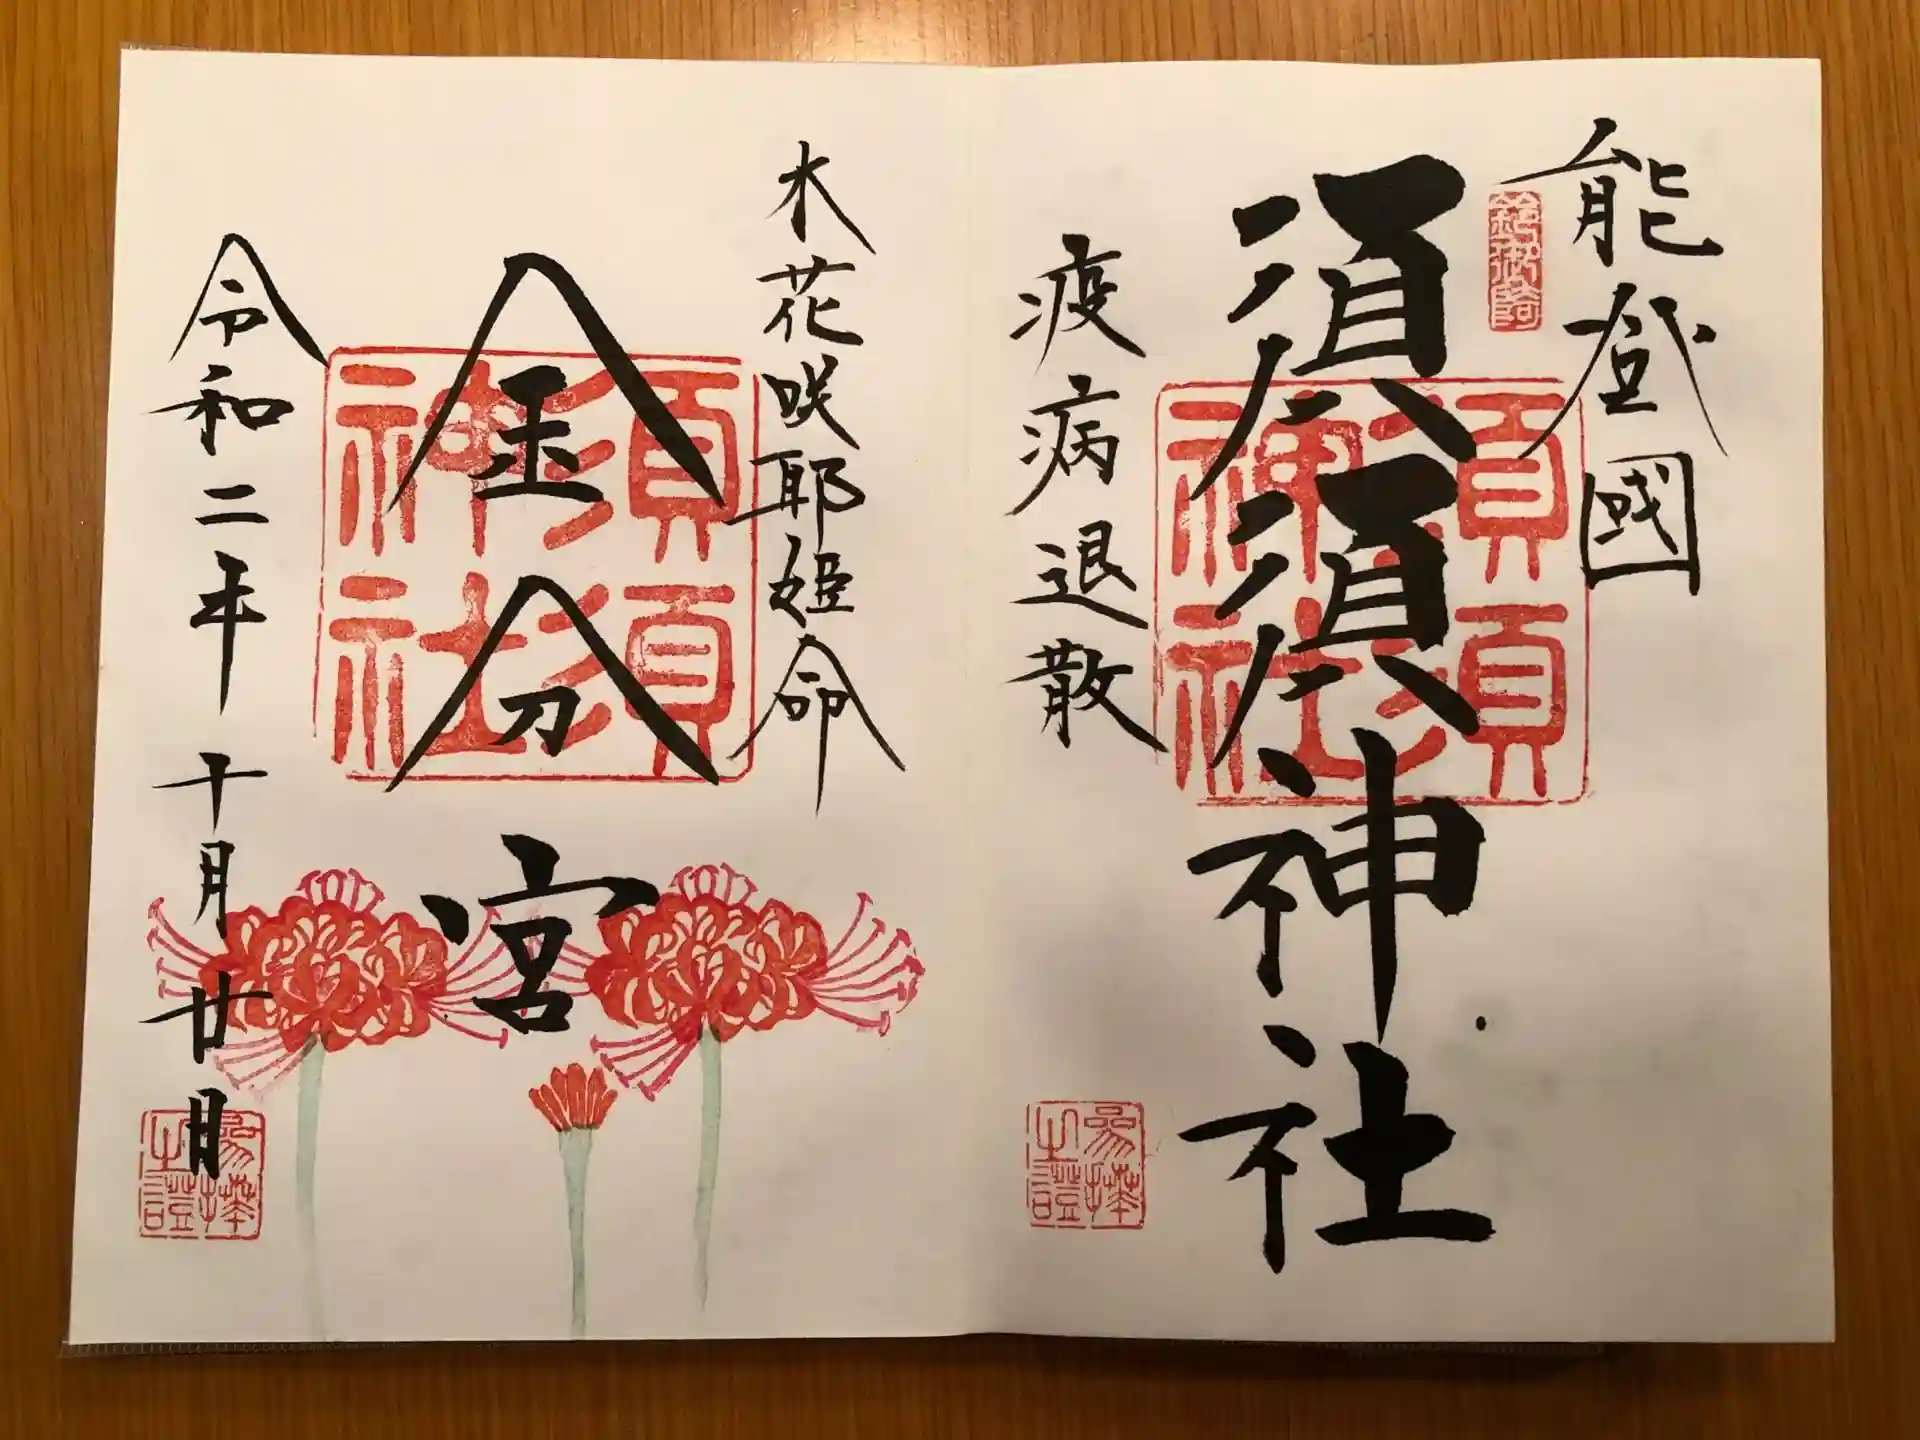 能登國
須須神社
須須神社
疫病退散
参拝之證
木花咲耶姫命
金分宮
須須神社
令和二年 十月 廿日
参拝之證